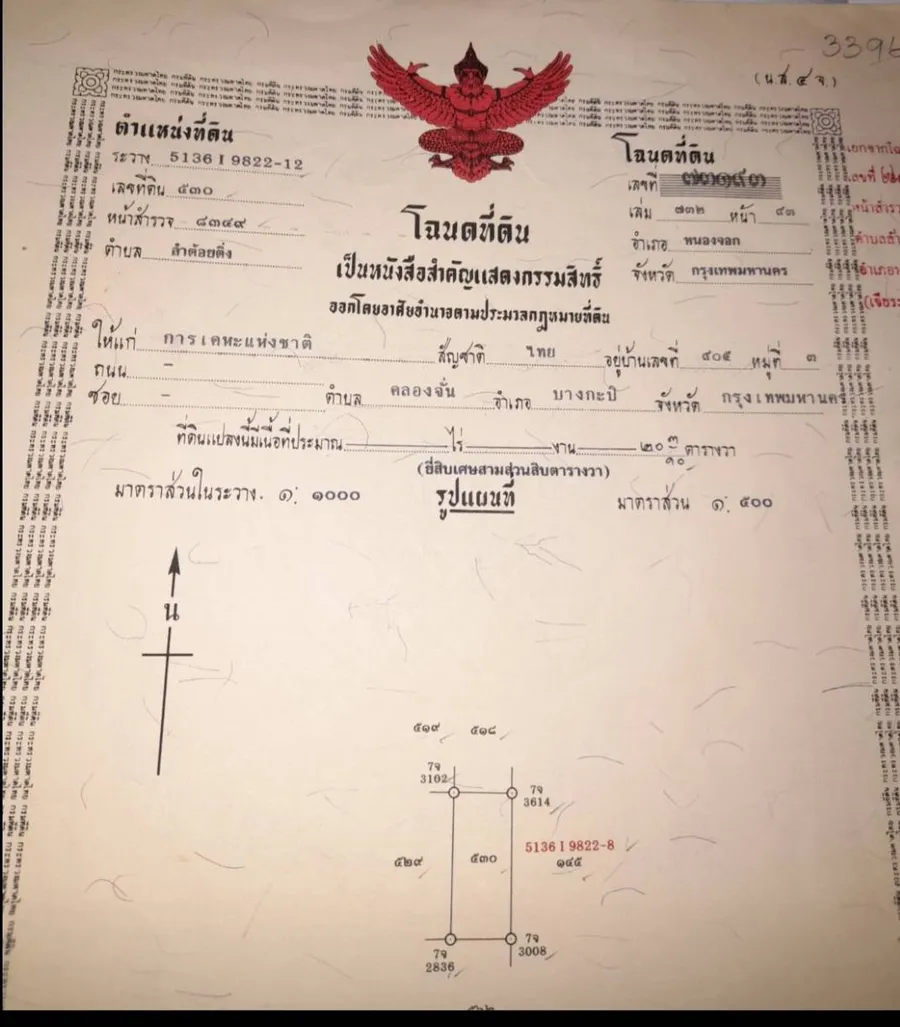 3396
(น.ส.๔ จ.)
ตำแหน่งที่ดิน
ระวาง 5136 I 9822-12
เลขที่ดิน ๕๓๐
หน้าสำรวจ ๘๓๔๙
ตำบล ลำต้อยติ่ง
โฉนดที่ดิน
เลขที่
เล่ม ๗๓๒ หน้า ๙๓
อำเภอ หนองจอก
จังหวัด กรุงเทพมหานคร
เลขที่
หน้าสำรว
โฉนดที่ดิน
เป็นหนังสือสำคัญแสดงกรรมสิทธิ์
ออกโดยอาศัยอำนาจตามประมวลกฎหมายที่ดิน
ให้แก่ การเคหะแห่งชาติ สัญชาติ ไทย อยู่บ้านเลขที่ ๙๐๕ หมู่ที่ ๓
ถนน –
ซอย – ตำบล คลองจั่น อำเภอ บางกะปิ จังหวัด กรุงเทพมหานคร
ที่ดินแปลงนี้มีเนื้อที่ประมาณ ไร่ งาน ๒๐ ๓/๑๐ ตารางวา
(ยี่สิบเศษสามส่วนสิบตารางวา)
มาตราส่วนในระวาง ๑: ๑๐๐๐ รูปแผนที่ มาตราส่วน ๑: ๕๐๐
น
๕๑๙ ๕๑๘
7จ 3102
7จ 3614
๕๒๙ ๕๓๐ 5136 I 9822-8
๑๔๕
7จ 2836
7จ 3008